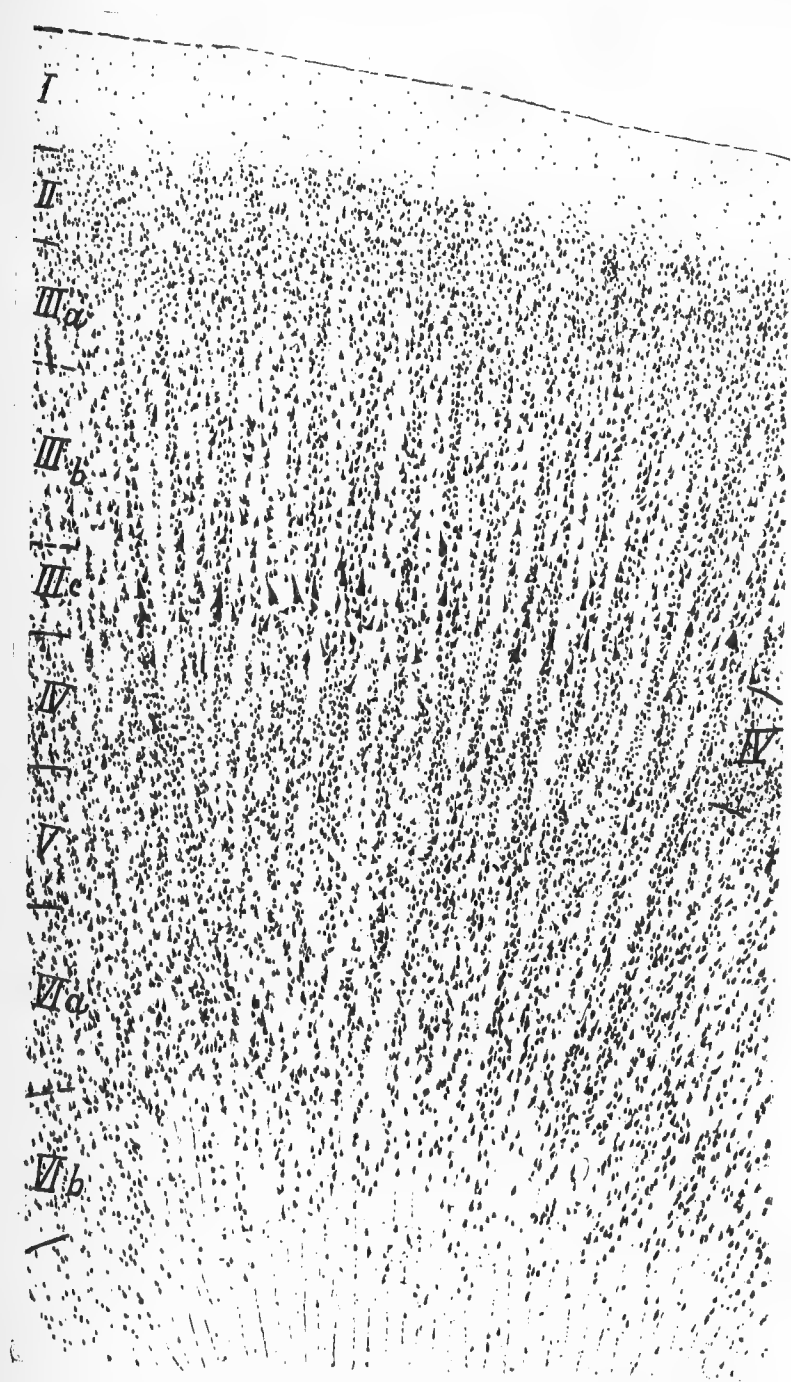 I
II
III a
III b
III c
IV
IV
V
VI a
VI b